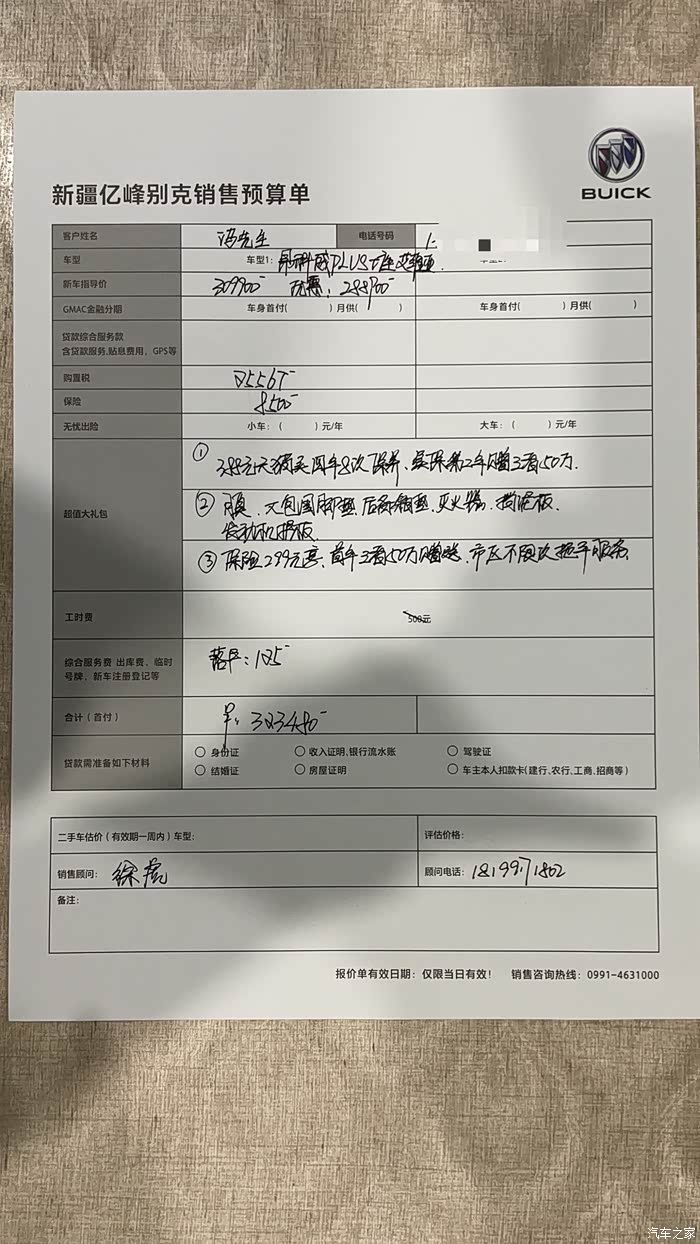 BUICK
新疆亿峰别克销售预算单
客户姓名 冯先生 电话号码
车型 车型1: 昂科威PLUS 艾维亚
新车指导价 309900 优惠: 288900
GMAC金融分期 车身首付( )月供( ) 车身首付( )月供( )
贷款综合服务款
含贷款服务,贴息费用,GPS等
购置税 25567
保险 8500
无忧出险 小车:( )元/年 大车:( )元/年
超值大礼包
① 388元 购买四年8次保养、 第2年赠三者50万.
② 贴膜、大包围脚垫、后备箱垫、灭火器、挡泥板、
发动机护板
③ 保险299元 、首年三者50万赠送、市区不限次拖车服务
工时费 500元
综合服务费 出库费、临时
号牌、新车注册登记等
落户: 125
合计(首付) ¥: 323480
贷款需准备如下材料
○ 身份证 ○ 收入证明,银行流水账 ○ 驾驶证
○ 结婚证 ○ 房屋证明 ○ 车主本人扣款卡(建行、农行、工商、招商等)
二手车估价(有效期一周内)车型: 评估价格:
销售顾问: 徐虎 顾问电话: 18199971802
备注:
报价单有效日期: 仅限当日有效! 销售咨询热线: 0991-4631000
汽车之家